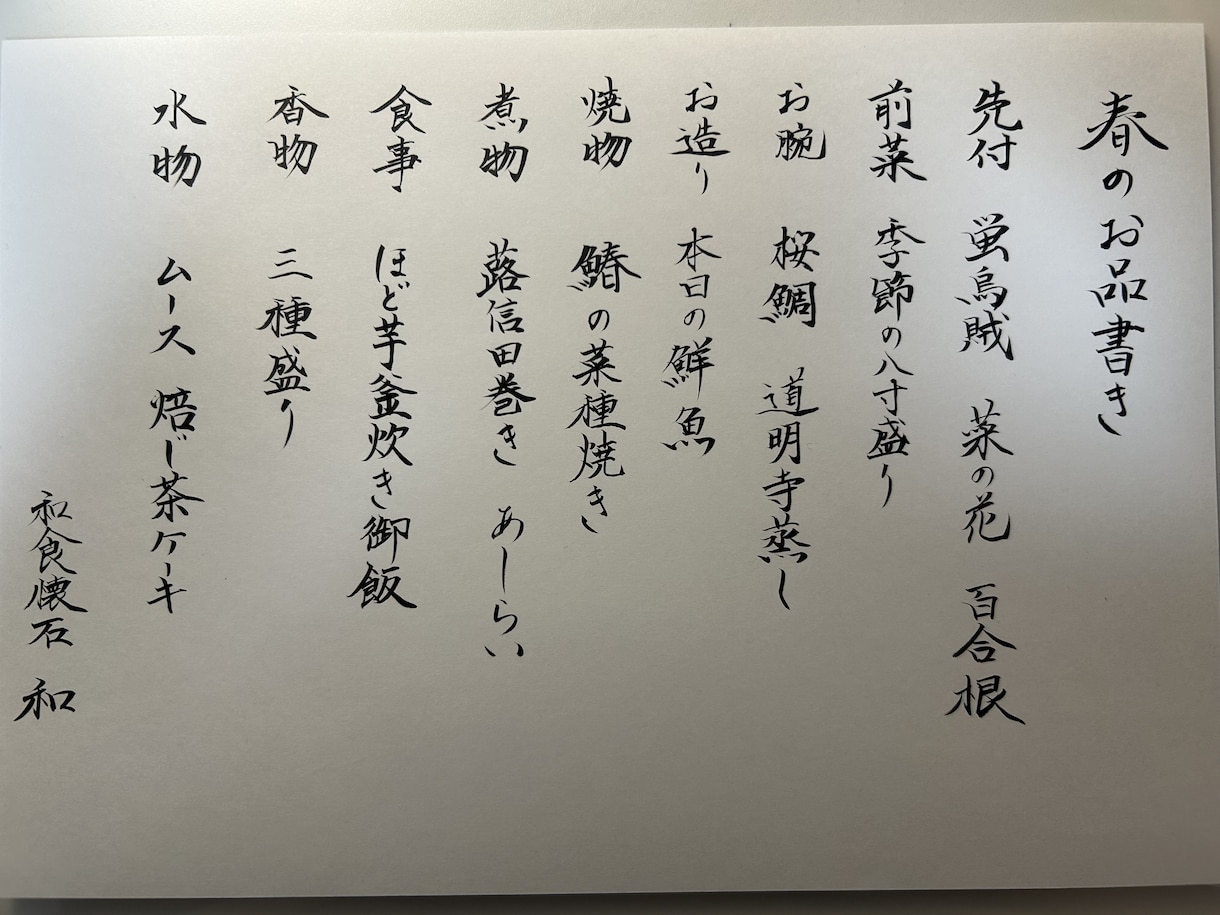 春のお品書き
先付 蛍烏賊 菜の花 百合根
前菜 季節の八寸盛り
お腕 桜鯛 道明寺蒸し
お造り 本日の鮮魚
焼物 鰆の菜種焼き
煮物 蕗信田巻き あしらい
食事 ほど芋釜炊き御飯
香物 三種盛り
水物 ムース 焙じ茶ケーキ
和食懐石 和